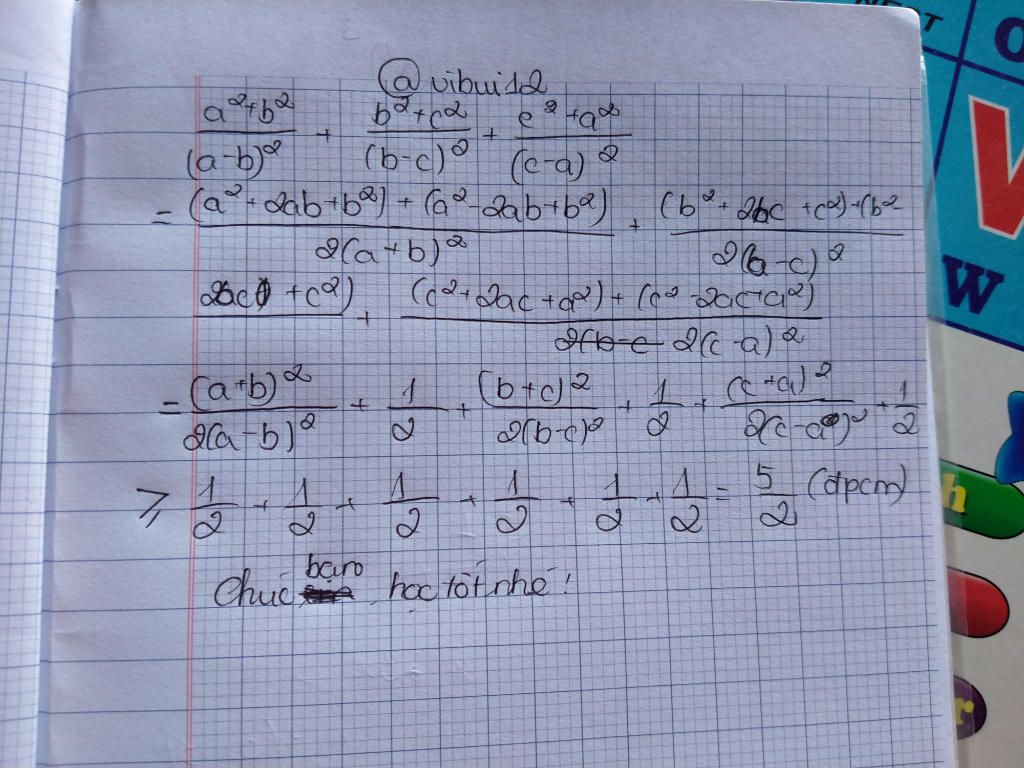 @vibui12
(a²+b²)/(a-b)² + (b²+c²)/(b-c)² + (c²+a²)/(c-a)²
= ((a²+2ab+b²)+(a²-2ab+b²))/(2(a+b)²) + ((b²+2bc+c²)+(b²-
2bc+c²))/(2(b-c)²) + ((c²+2ac+a²)+(c²-2ac+a²))/(2(c-a)²)
= (a+b)²/(2(a-b)²) + 1/2 + (b+c)²/(2(b-c)²) + 1/2 + (c+a)²/(2(c-a)²) + 1/2
≥ 1/2 + 1/2 + 1/2 + 1/2 + 1/2 + 1/2 = 5/2 (đpcm)
Chúc bạn học tốt nhé!
V
W
h
r